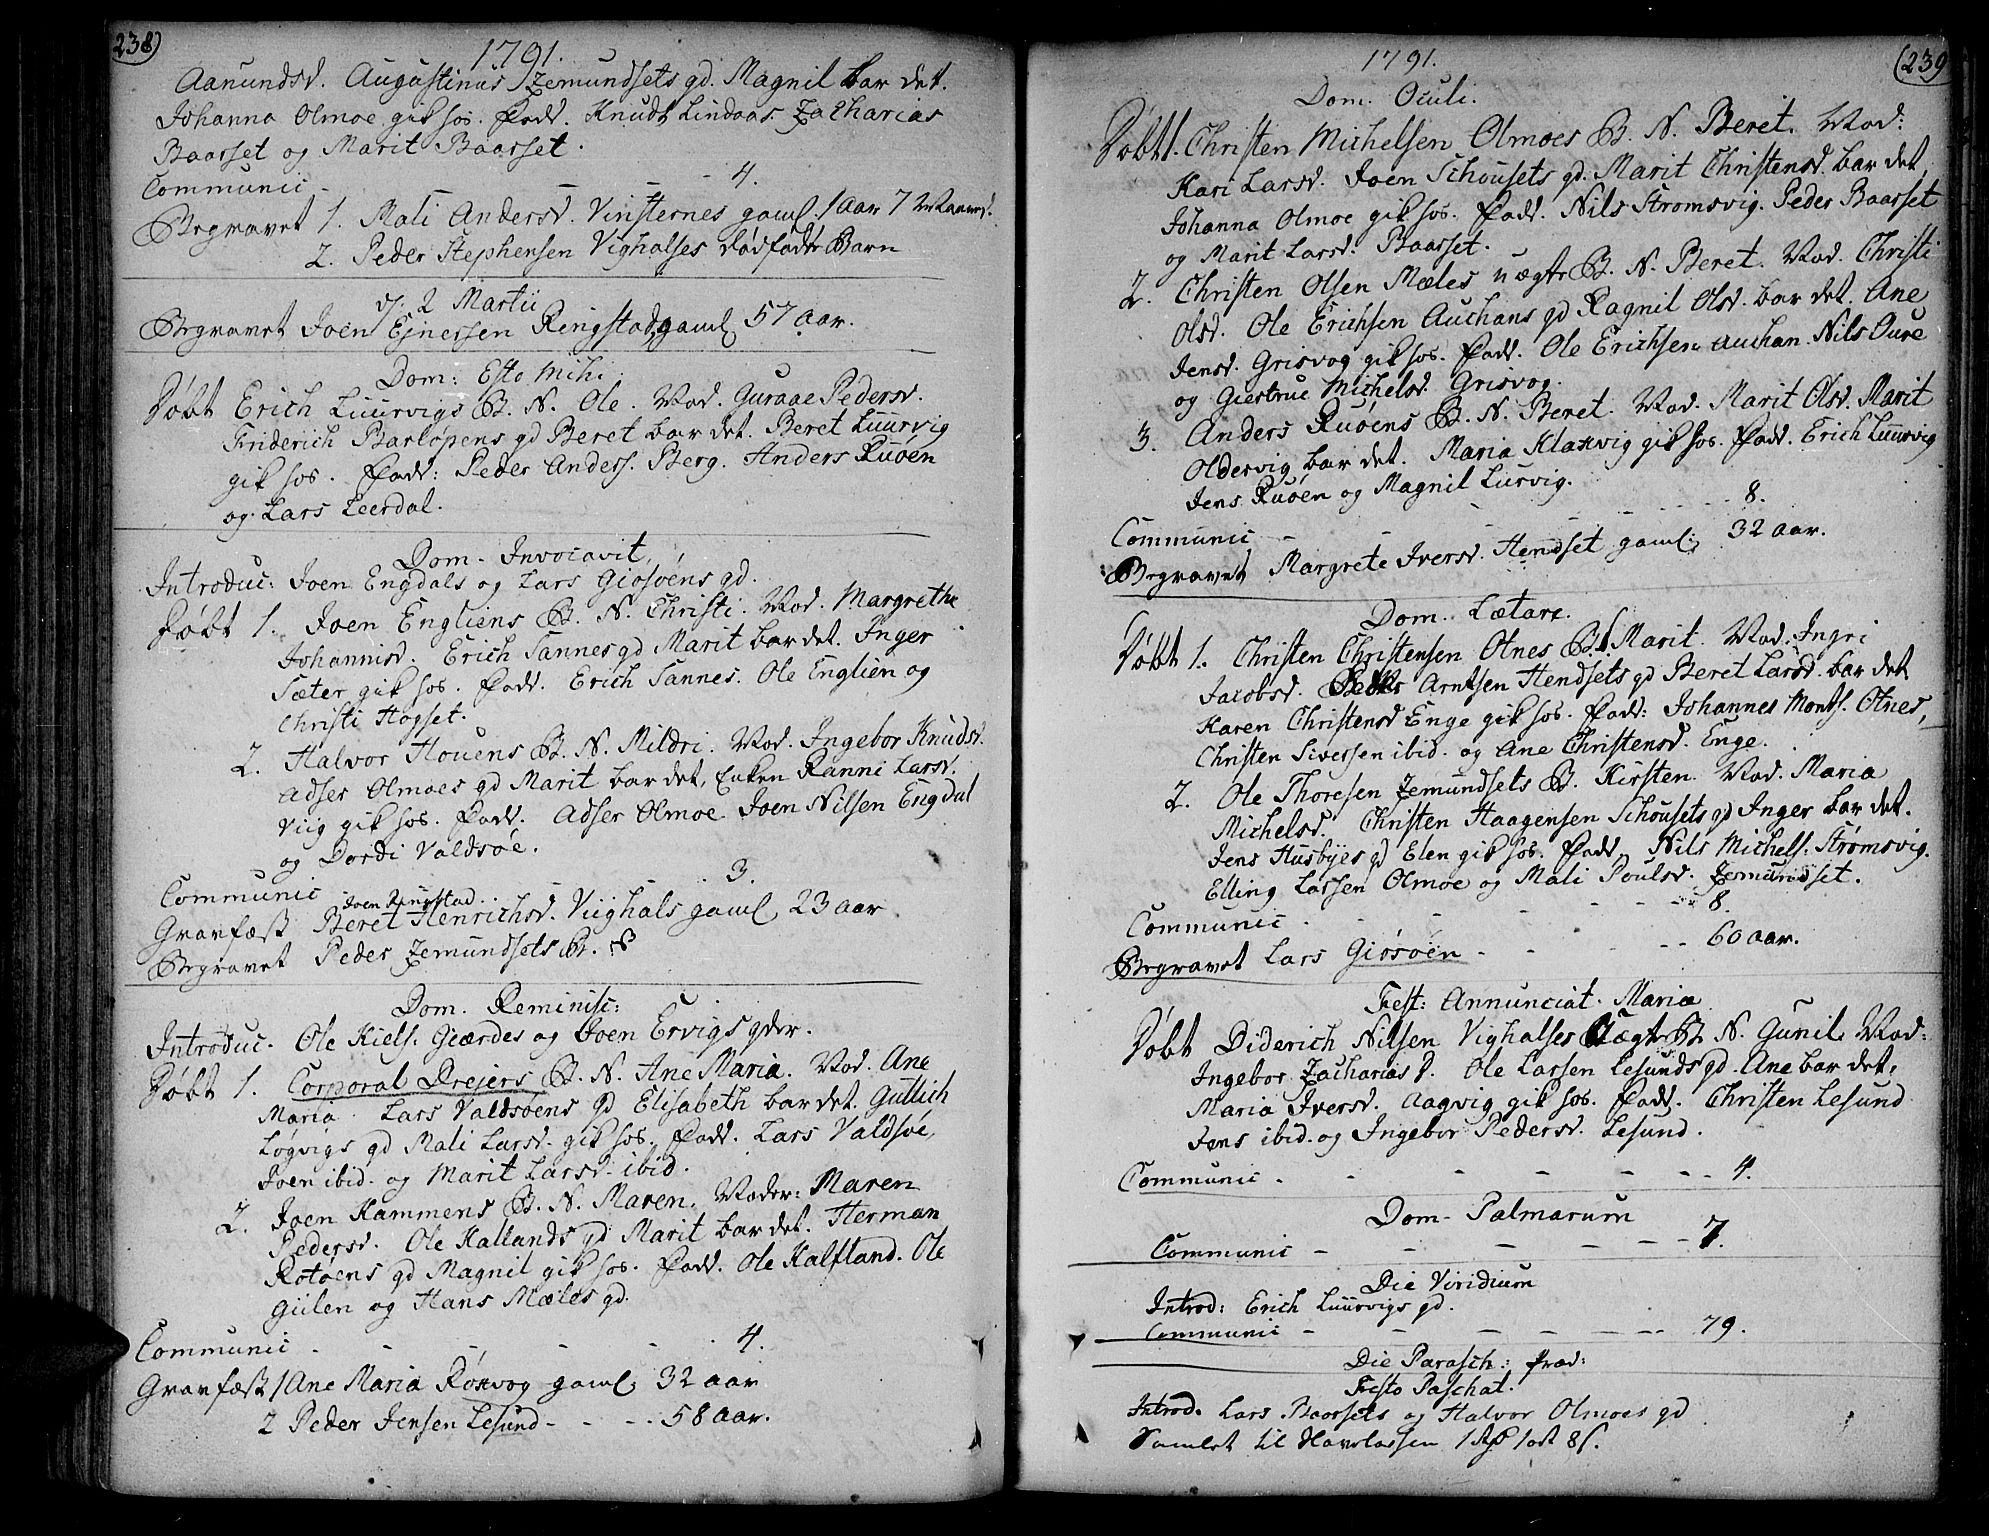 238)
1791.
Aanundsd. Augustinus Zemundsets gd. Magnil bar det.
Johanna Olmoe gik hos. Fadd. Knudt Lindaas Zacharias
Baarset og Marit Baarset.
Communic - - - - 4.
Begravet 1. Mali Andersd. Vinsternes gaml. 1 Aar 7 Maaned.
2. Peder Stephensen Vighalses dødfødte Barn
d. 2 Martii
Begravet Joen Ejnersen Ringstad, gaml 57 aar.
Dom: Esto Mihi
Døbt Erich Luurvigs B. N. Ole. Mod. Guraae Pedersd.
Friderich Barløpens gd Beret bar det. Beret Luurvig
gik hos. Fadd: Peder Anders. Berg. Anders Ruøen
og Lars Leerdal.
Dom. Invocavit
Introduc: Joen Engdals og Lars Giøsøens gd.
Døbt 1. Joen Engliens B. N. Christi. Mod. Margrethe
Johannisd. Erich Sannes gd Marit bar det. Inger
Sæter gik hos. Fadd. Erich Sannes. Ole Englien og
Christi Hogset.
2. Halvor Houens B. N. Mildri. Mod. Ingebor Knudsd.
Adser Olmoes gd Marit bar det, Enken Ranni Larsd.
Viig gik hos. Fadd. Adser Olmoe Joen Nilsen Engdal
og Dordi Valdsøe.
Communic - - - 3.
Joen Ringstad.
Gravfæst Beret Henrichsd. Viighals gaml 23 aar
Begravet Peder Zemundsets B.
Dom. Reminisc:
Introduc. Ole Kiels. Gierdes og Joen Ervigs gder.
Døbt 1. Corporal Drejers B. N. Ane Maria. Mod. Ane
Maria Lars Valdsøens gd Elisabeth bar det. Guttich
Løgvigs gd Mali Larsd. gik hos. Fadd. Lars Valdsøe,
Joen ibid. og Marit Larsd. ibid.
2. Joen Hammens B. N. Maren, Moder: Maren
Pedersd. Ole Kallands gd Marit bar det. Herman
Rotøens gd Magnil gik hos. Fadd. Ole Kalfland. Ole
Giilen og Hans Mæles gd.
Communic - - - - 4.
Gravfæst 1 Ane Maria Røxvog gaml 32 aar
2 Peder Jensen Lesund - - - 58 Aar.
(239
1791.
Dom. Oculi.
Døbt 1. Christen Michelsen Olmoes B. N. Beret. Mod:
Kari Larsd. Joen Schousets gd. Marit Christensd. bar det,
Johanna Olmoe gik hos. Fadd. Nils Strømsvig. Peder Baarset
og Marit Larsd. Baarset.
2. Christen Olsen Mæles uægte B. N. Beret. Mod. Christi
Olsd. Ole Erichsen Auchans gd Ragnil Olsd. bar det. Ane
Jensd. Grisvog gik hos. Fadd. Ole Erichsen Auchan. Nils Oure
og Giertrue Michelsd. Grisvog.
3. Anders Ruøens B. N. Beret. Mod. Marit Olsd. Marit
Oldervig bar det. Maria Klaxvig gik hos. Fadd. Erich Luurvig
Jens Ruøen og Magnil Lurvig.
Communic - - - - 8.
Begravet Margrete Iversd. Hendset gaml. 32 aar.
Dom. Lætare.
Døbt 1. Christen Christensen Otnes B. Marit. Mod. Ingri
Jacobsd. Peder Arntsen Hendsets gd Beret Larsd. bar det
Karen Christensd Enge gik hos. Fadd: Johannes Monts. Otnes,
Christen Sivertsen ibid. og Ane Christensd. Enge.
2. Ole Thoresen Zemundsets B. Kirsten. Mod. Maria
Michelsd. Christen Haagensen Schousets gd Inger bar det.
Jens Husbyes gd Elen gik hos. Fadd. Nils Michels. Strømsvig.
Elling Larsen Olmoe og Mali Poulsd. Zemundset.
Communic - - - - 8.
Begravet Lars Giøsøen - - - 60 aar.
Fest: Annunciat. Mariæ
Døbt Diderich Nilsen Vighalses uægte B N. Gunil. Mod:
Ingebor Zacharias D. Ole Larsen Lesunds gd. Ane bar det,
Maria Iversd. Aagvig gik hos. Fadd. Christen Lesund
Jens ibid. og Ingebor Pedersd. Lesund.
Communic - - - - 4.
Dom. Palmarum
Communic - - - - 7.
Die Viridium
Introd: Erich Luurvigs gd.
Communic - - - - 79.
Die Parasch: præd:
Festo Paschat.
Introd. Lars Baarsets og Halvor Olmoes gd
Samlet til 1 ort 8 s.